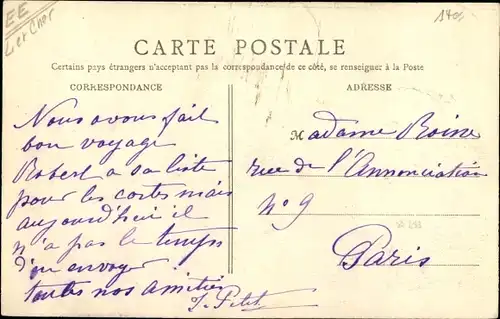 EE
Loir et Cher
CARTE POSTALE
Certains pays étrangers n'acceptant pas la correspondance de ce côté, se renseigner à la Poste
CORRESPONDANCE
Nous avons fait
bon voyage
Robert a sa liste
pour les cartes mais
aujourd'hui il
n'a pas le temps
d'en envoyer
toutes nos amitiés
J. Petit
ADRESSE
Madame Roine
rue de l'Annonciation
N° 9
Paris